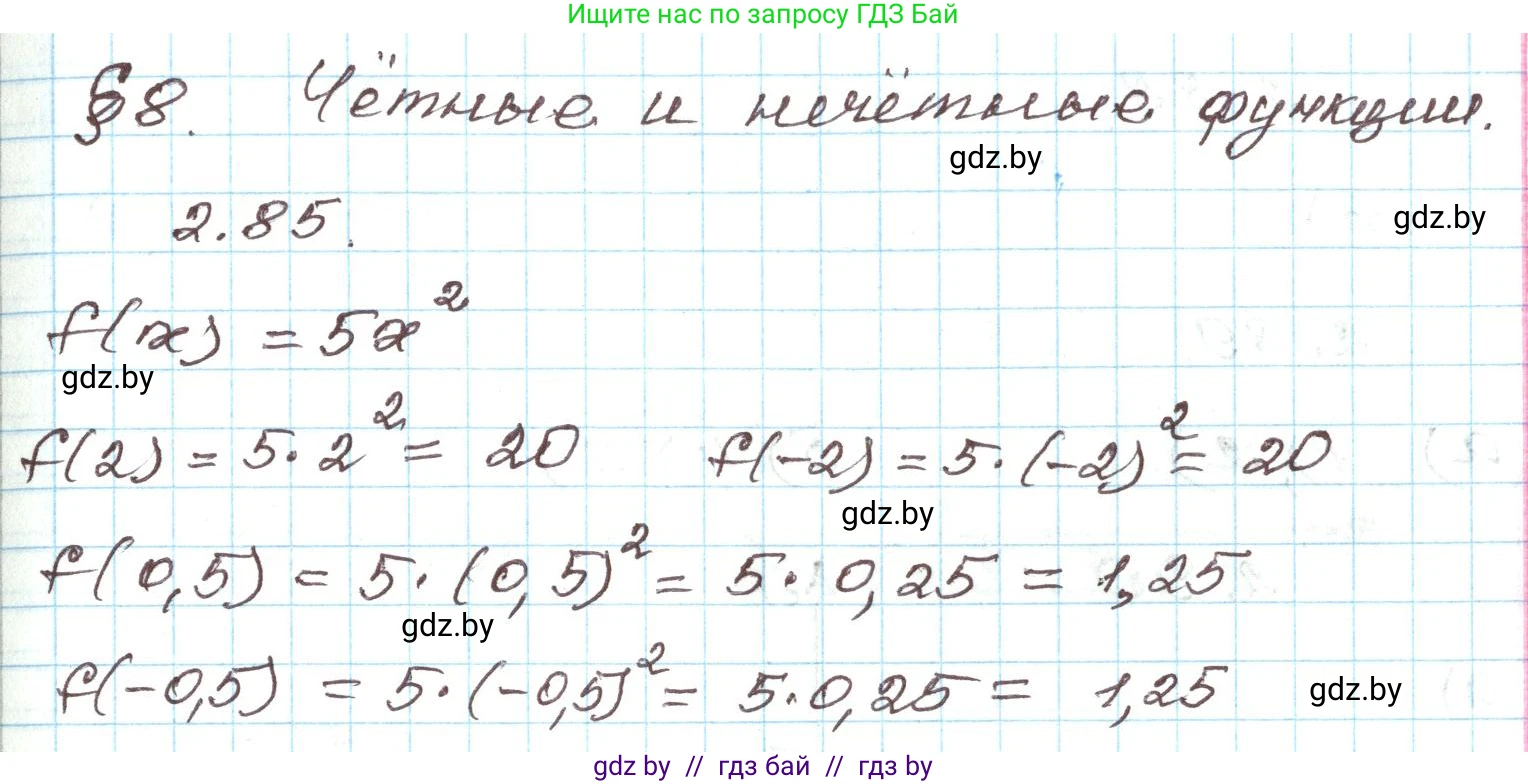 Ищите нас по запросу ГДЗ Бай
§8. Чётные и нечётные функции.
gdz.by
2.85.
gdz.by
f(x) = 5x²
gdz.by
f(2) = 5·2² = 20 f(-2) = 5·(-2)² = 20
gdz.by
f(0,5) = 5·(0,5)² = 5·0,25 = 1,25
gdz.by
f(-0,5) = 5·(-0,5)² = 5·0,25 = 1,25
gdz.by
gdz by // гдз бай // гдз by